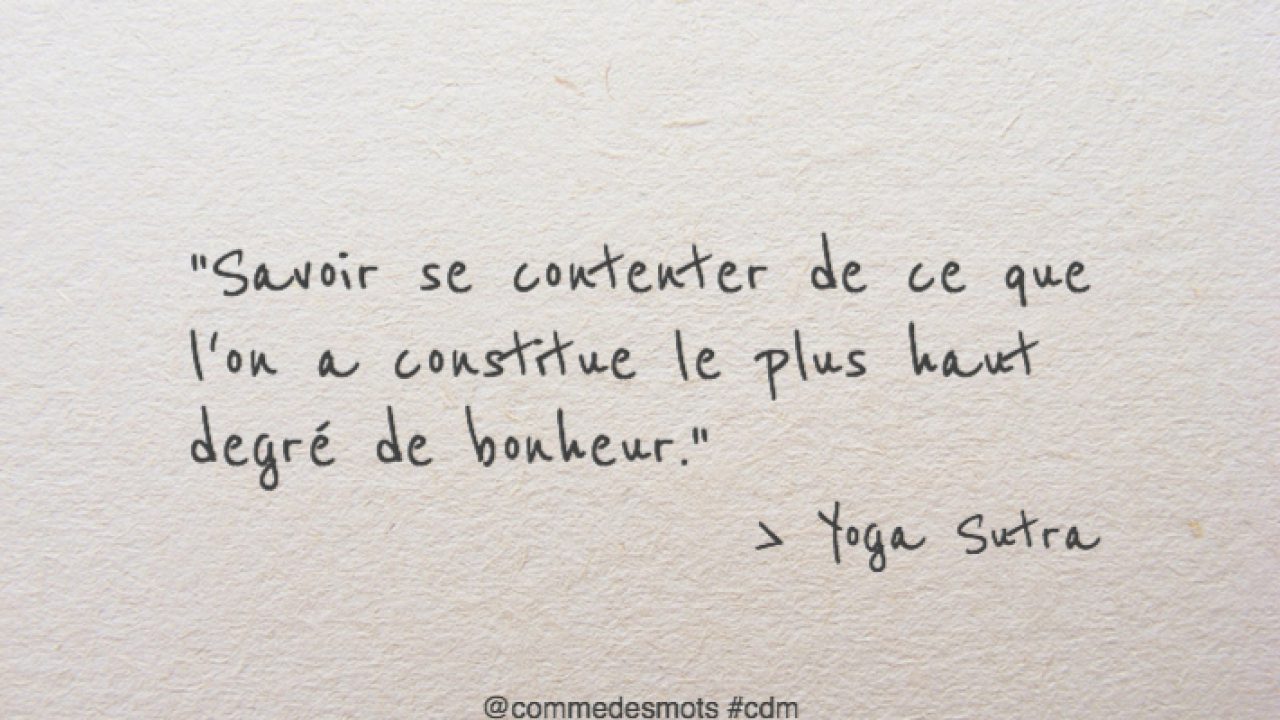 "Savoir se contenter de ce que
l'on a constitue le plus haut
degré de bonheur."
> Yoga Sutra
@commedesmots #cdm